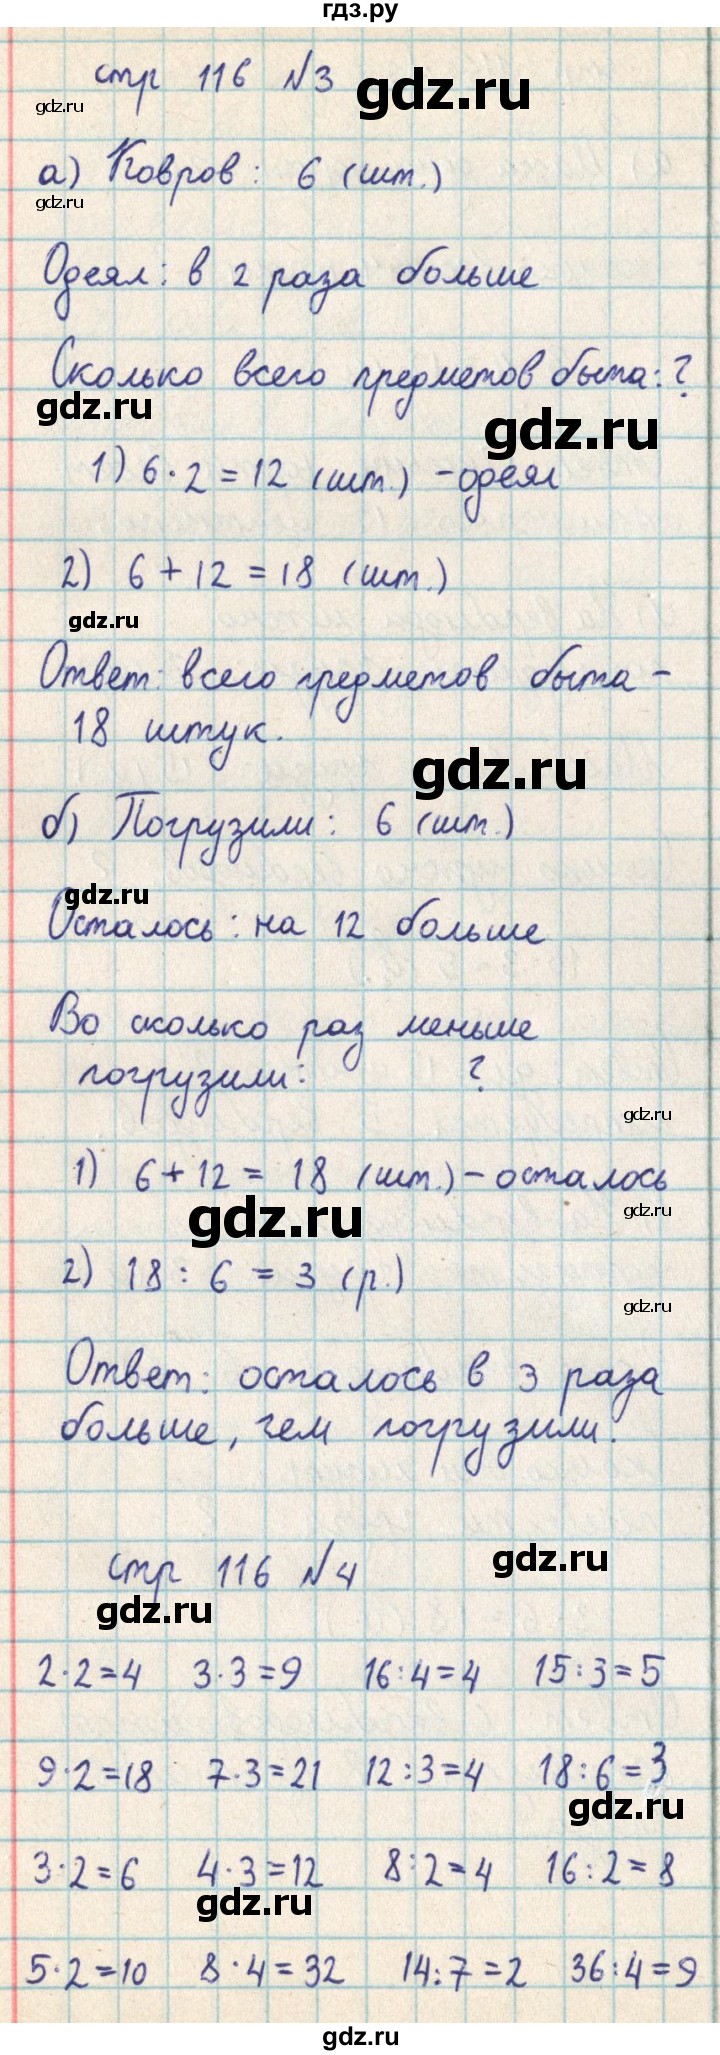 гдз.ру
стр 116 №3
gdz.ru
gdz.ru
а) Ковров: 6 (шт.)
gdz.ru
Одеял: в 2 раза больше
Сколько всего предметов быта: ?
gdz.ru
gdz.ru
1) 6·2=12 (шт.) - одеял
2) 6+12=18 (шт.)
gdz.ru
Ответ: всего предметов быта -
18 штук.
gdz.ru
б) Погрузили: 6 (шт.)
gdz.ru
Осталось: на 12 больше
Во сколько раз меньше
погрузили: ?
gdz.ru
1) 6+12= 18 (шт.) - осталось
gdz.ru
gdz.ru
2) 18 : 6 = 3 (р.)
gdz.ru
Ответ: осталось в 3 раза
больше, чем погрузили.
gdz.ru
стр 116 №4
gdz.ru
2·2=4 3·3=9 16:4=4 15:3=5
9·2=18 7·3=21 12:3=4 18:6=3
gdz.ru
3·2=6 4·3=12 8:2=4 16:2=8
gdz.ru
5·2=10 8·4=32 14:7=2 36:4=9
gdz.ru